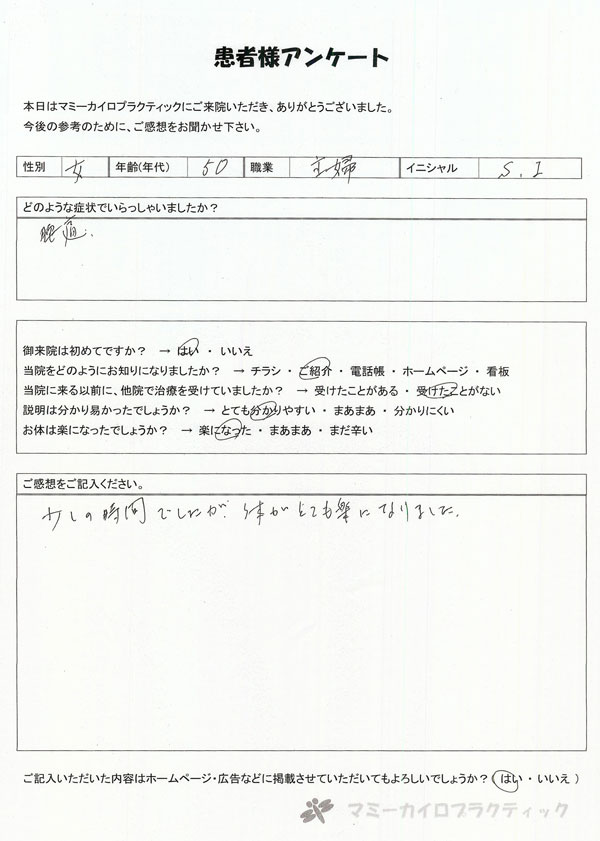 患者様アンケート
本日はマミーカイロプラクティックにご来院いただき、ありがとうございました。
今後の参考のために、ご感想をお聞かせ下さい。
性別 女 年齢(年代) 50 職業 主婦 イニシャル S.I
どのような症状でいらっしゃいましたか?
腕痛.
御来院は初めてですか? → はい ・ いいえ
当院をどのようにお知りになりましたか? → チラシ ・ ご紹介 ・ 電話帳 ・ ホームページ ・ 看板
当院に来る以前に、他院で治療を受けていましたか? → 受けたことがある ・ 受けたことがない
説明は分かり易かったでしょうか? → とても分かりやすい ・ まあまあ ・ 分かりにくい
お体は楽になったでしょうか? → 楽になった ・ まあまあ ・ まだ辛い
ご感想をご記入ください。
少しの時間でしたが、体がとても楽になりました。
ご記入いただいた内容はホームページ・広告などに掲載させていただいてもよろしいでしょうか?( はい ・ いいえ )
マミーカイロプラクティック